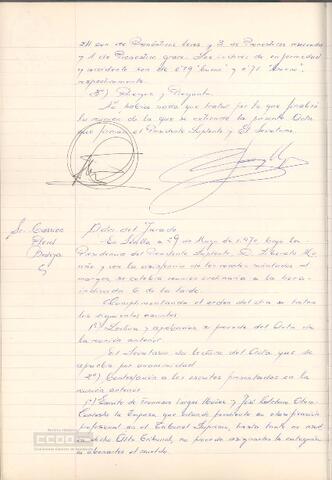 211 con 198 Pronósticos leves y 2 de Pronóstico reservado
y 1 de Pronóstico grave. Los índices de enfermedad
y accidente son de 2'19 "bueno" y 2'71 "bueno",
respectivamente.
5º) Ruegos y Preguntas
No habiendo nada que tratar por lo que finalizó
la reunión de la que se extiende la presente Acta
que firman el Presidente Suplente y El Secretario.
Sr. Garrido
Sala del Jurado
En Sevilla a 29 de Mayo de 1.970 bajo la
Presidencia del Presidente Suplente, D.
y con la asistencia de los vocales anotados al
margen se celebra reunión ordinaria a la hora
indicada 6 de la tarde.
Cumplimentando el orden del día se tratan
los siguientes asuntos
1º) Lectura y aprobación si procede del Acta de
la reunión anterior
El Secretario da lectura del Acta que se
aprueba por unanimidad.
2º) Contestación a los escritos presentados en la
reunión anterior
1º) Escrito de Francisco Vargas y José
Contesta la Empresa que estando pendiente su clasificación
profesional en el Tribunal Supremo, hasta tanto no resuelva
dicho Alto Tribunal, no procede asignarles la categoría
ni abonarles el sueldo.
CCOO